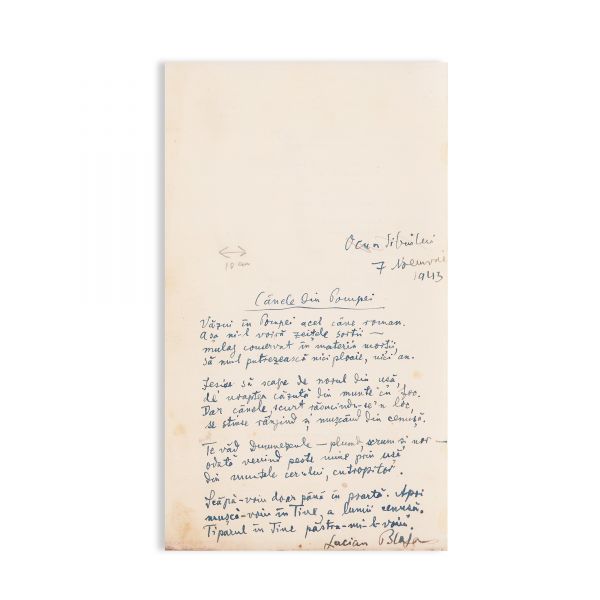 Ocna Sibiului
7 Noemvrie
1943
10 cm
Cânele din Pompei
Văzui în Pompei acel câne roman.
Așa mi-l voiră zeițele sorții —
mulaj conservat în materia morții,
să nu-l putrezească nici ploaie, nici an.
Ieșise să scape de norul din ușă,
de noaptea căzută din munte cu foc.
Dar cânele, scurt răsucindu-se'n loc,
se stinse rânjind și mușcând din cenușă.
Te văd Dumnezeule — plumb, scrum și nor —
odată venind peste mine prin ușă
din muntele cerului, cutropitor.
Scăpă-voiu doar până în poartă. Apoi
mușcă-voiu în Tine, a lumii cenușă.
Tiparul în Tine păstra-mi-l-voiu.
Lucian Blaga